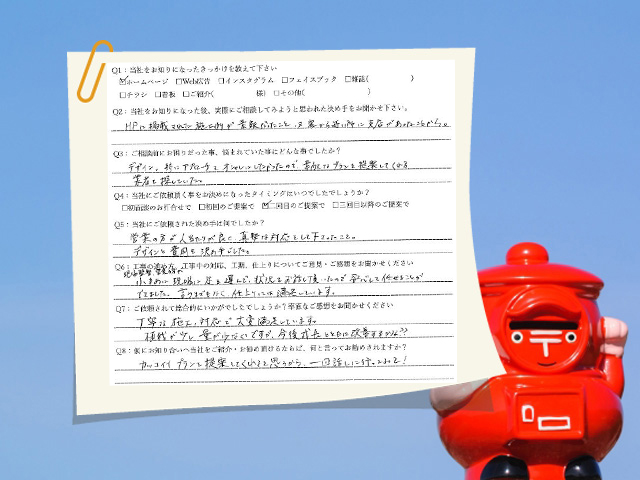 Q1：当社をお知りになったきっかけを教えて下さい
☑ホームページ □Web広告 □インスタグラム □フェイスブック □雑誌( )
□チラシ □看板 □ご紹介( 様) □その他( )
Q2：当社をお知りになった後、実際にご相談してみようと思われた決め手をお聞かせ下さい。
HPに掲載されていた施工例が素敵だったこと、又家から近い所に支店があったことから。
Q3：ご相談前にお困りだった事、悩まれていた事はどんな事でしたか？
デザイン。特にアプローチを、オシャレにしたかったので、素敵なプランを提案してくれる
業者を探していた。
Q4：当社にご依頼頂く事をお決めになったタイミングはいつでしたでしょうか？
□初面談のお打合せで □初回のご提案で ☑二回目のご提案で □三回目以降のご提案で
Q5：当社にご依頼された決め手は何でしたか？
営業の方が人当たりが良く、真摯な対応をして下さったこと。
デザインと費用も決め手でした。
Q6：工事の進め方、工事中の対応、工期、仕上りについてご意見・ご感想をお聞かせください
現場監督 営業の方が
小まめに現場に足を運んで、状況をお話して頂いたので安心して任せることが
できました。言うまでもなく、仕上りには満足しています。
Q7：ご依頼されて総合的にいかがでしたでしょうか？率直なご感想をお聞かせください
丁寧な施工、対応で大変満足しています。
植栽が少し量が少ないですが、今後成長とともに改善するかな??
Q8：仮にお知り合いへ当社をご紹介・お勧め頂けるならば、何と言ってお勧めされますか？
カッコイイプランを提案してくれると思うから、一回話しに行ってみて！